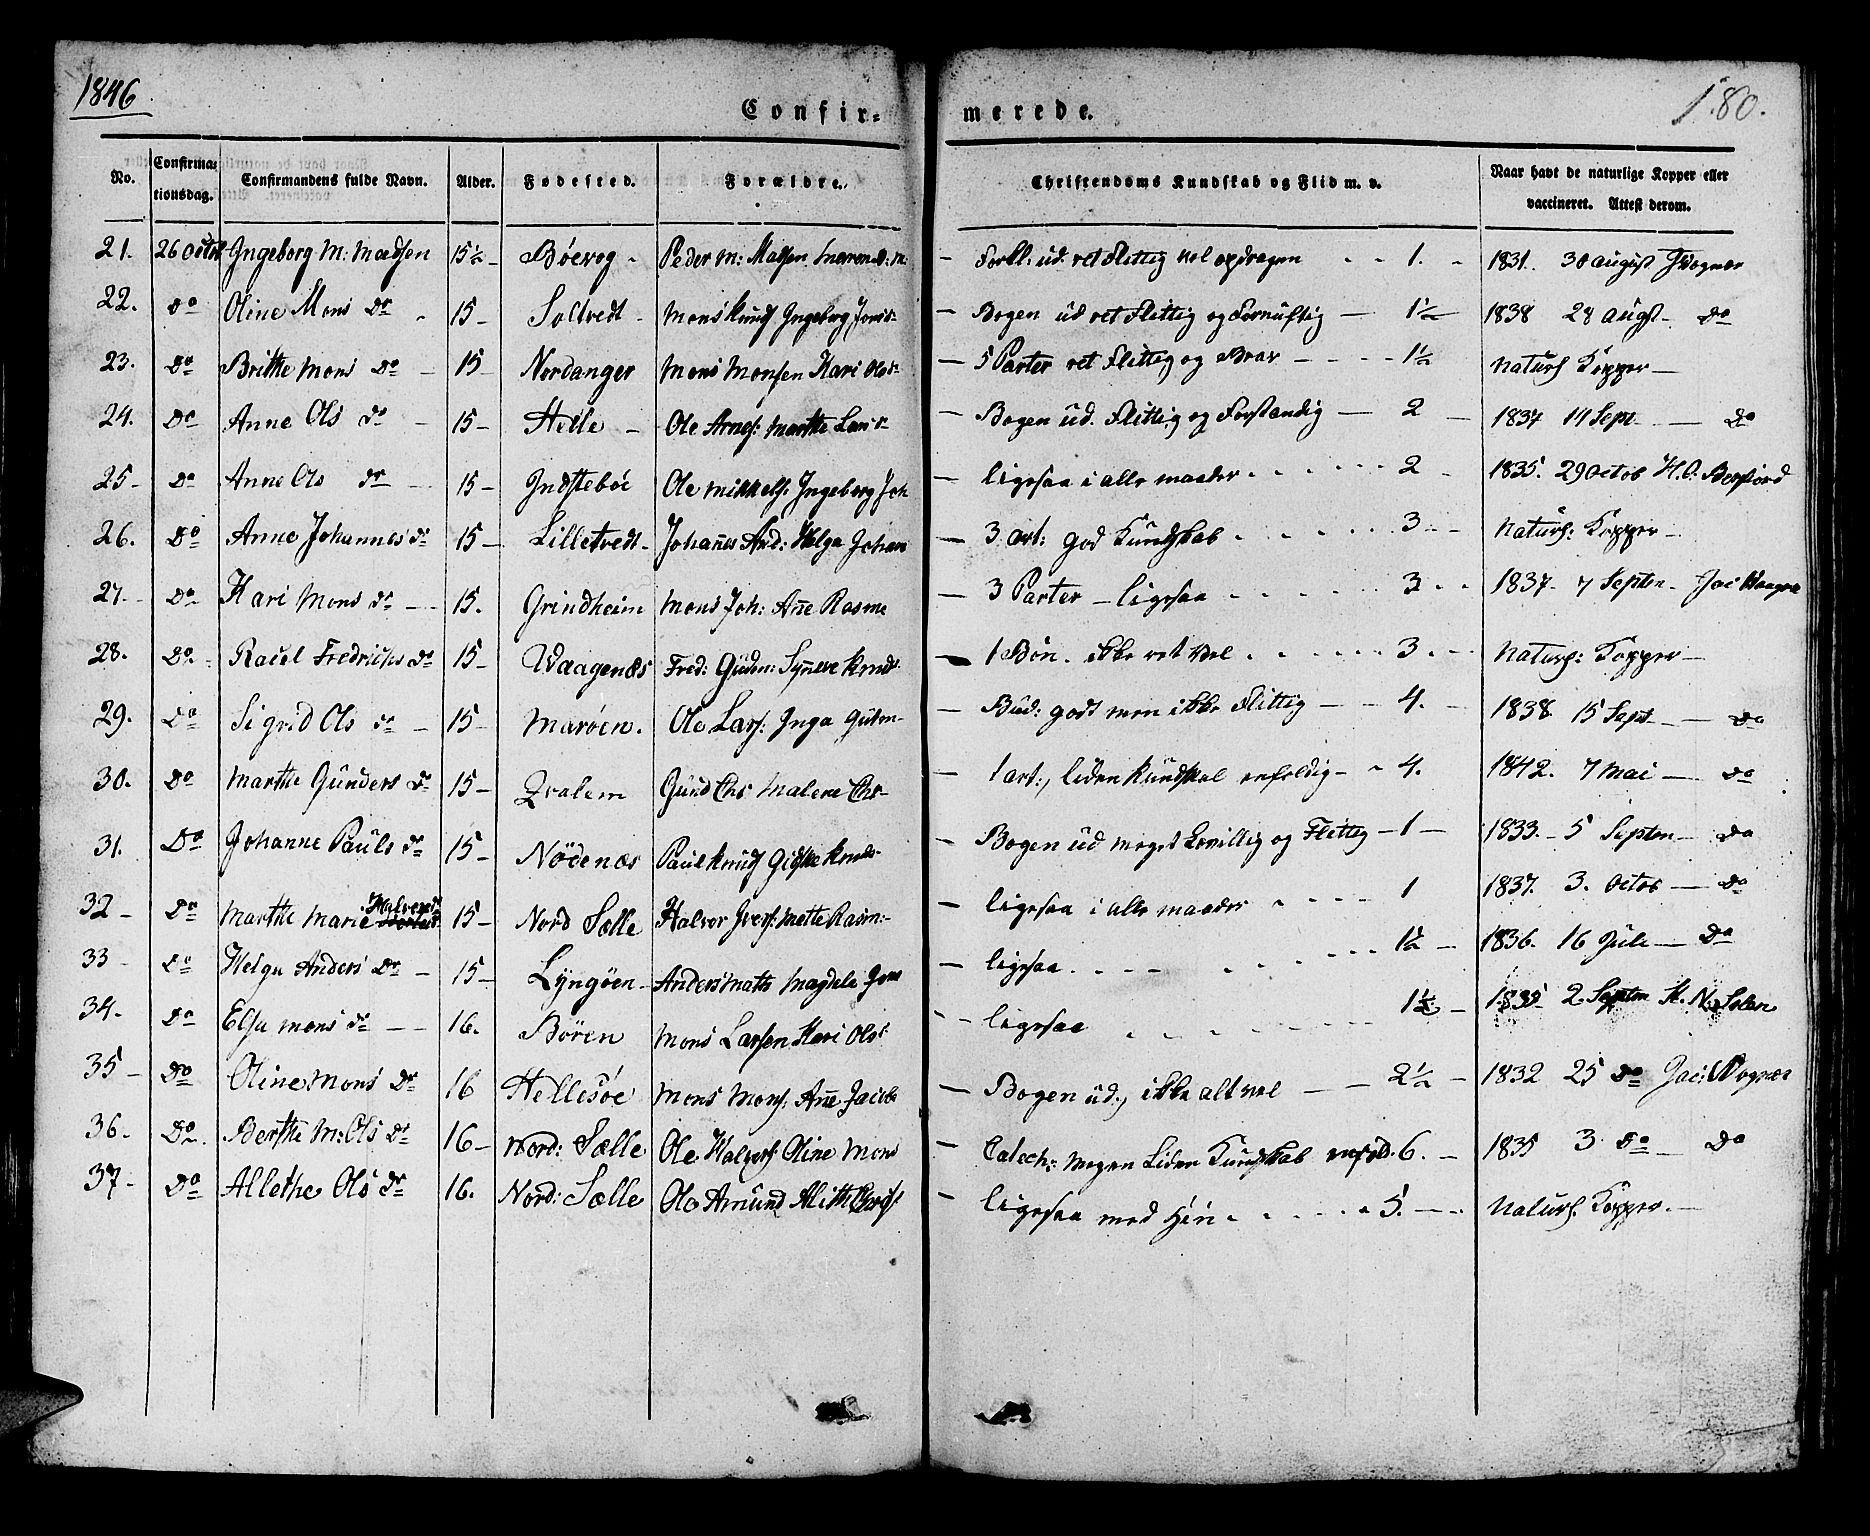 1846
180.
Confir- merede.
No. Confirma-tionsdag. Confirmandens fulde Navn. Alder. Fødested. Forældre. Christendoms Kundskab og Flid m. v. Naar havt de naturlige Kopper eller vaccineret. Attest derom.
21. 26 Octob Ingeborg M: Madsen 15½ Bøevog Peder M: Matsen 1. 1831. 30 August
22. Do Oline Mons Dr 15 Soltvedt Mons Knuds Ingeborg Jons Bogen ud ret Flittig og Fornuftig 1½ 1838 28 Augst Do
23. Do Brithe Mons Dr 15 Nordanger Mons Monsen Kari Ols 5 Parter ret Flittig og Brav 1½ Naturl Kopper
24. Do Anne Ols dr 15 Helle Ole Arnes: Marthe Lars Bogen ud. Flittig og Forstandig 2 1837 14 Sept Do
25 Do Anne Ols dr 15 Indstebøe Ole Mikkels: Ingeborg Joh ligesaa i alle maader 2 1835. 29 Octob
26. Do Anne Johannes dr 15 Lilletvedt Johañes And: Helga Johan 3 art: god Kundskab 3 Naturl: Kopper
27 Do Kari Mons dr 15. Grindheim Mons Joh: Añe Rasm 3 Parter ligesaa 3 1837. 7 Septen
28. Do Fredrichs dr 15 Waagenæs Fred: Gudm: Synneve Knuds 1 Bøn. ikke ret vel 3 Naturl: Kopper
29. Do Sigrid Ols dr 15 Marøen. Ole Lars: Inga Gudm Bud: godt men ikke Flittig 4. 1838. 15 Sept Do
30. Do Marthe Gunders dr 15 Qvalem Gund Chr Malene Chr 1 art:, liden Kundskab enfoldig 4. 1842. 7 Mai Do
31. Do Johanne Pauls dr 15 Nödenæs Paul Knuds Gidske Knuds Bogen ud meget Lærvillig og Flittig 1 1833. 5 Septen Do
32 Do Marthe Marie Halvors 15 Nord Sælle Halvor Ivers: Mette Rasm: ligesaa i alle maader 1 1837. 3. Octob Do
33 Do Helga Anders Dr 15 Lyngøen Anders Mats Magdele Jons ligesaa. 1½ 1836. 16 Juli Do
34. Do Elsa Mons dr 16. Bören Mons Larsen Kari Ols ligesaa 1½ 1835 2. Septen
35 Do Oline Mons Dr 16 Hellesøe Mons Mons. Añe Jacob Bogen ud., ikke alt vel 2½ 1832 25 Do
36. Do Berthe M: Ols Dr 16 Nord: Sælle Ole Halvors Oline Mons Catech: megen Liden Kundskab enfold. 6. 1835 3 Do Do
37 Do Allethe Ols dr 16. Nord: Sælle Ole Amund ligesaa med Hin 5. Naturl. Kopper.